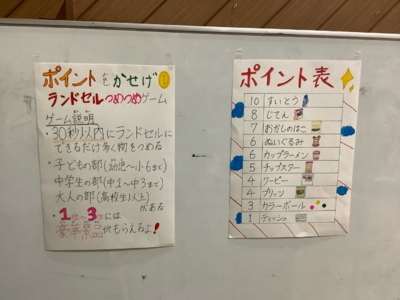 ポイントをかせげ!
ランドセルつめつめゲーム
ゲーム説明
・30秒以内にランドセルに
できるだけ多く物をつめる
・子どもの部(幼児〜小6まで)
中学生の部(中1〜中3まで)
大人の部(高校生以上)
がある
・1位〜3位には
豪華景品がもらえるよ!
ポイント表
10 すいとう
8 じてん
7 おかしのはこ
6 ぬいぐるみ
6 カップラーメン
5 チップスター
4 ワーピー
4 プリッツ
3 カラーボール
1 ティッシュ